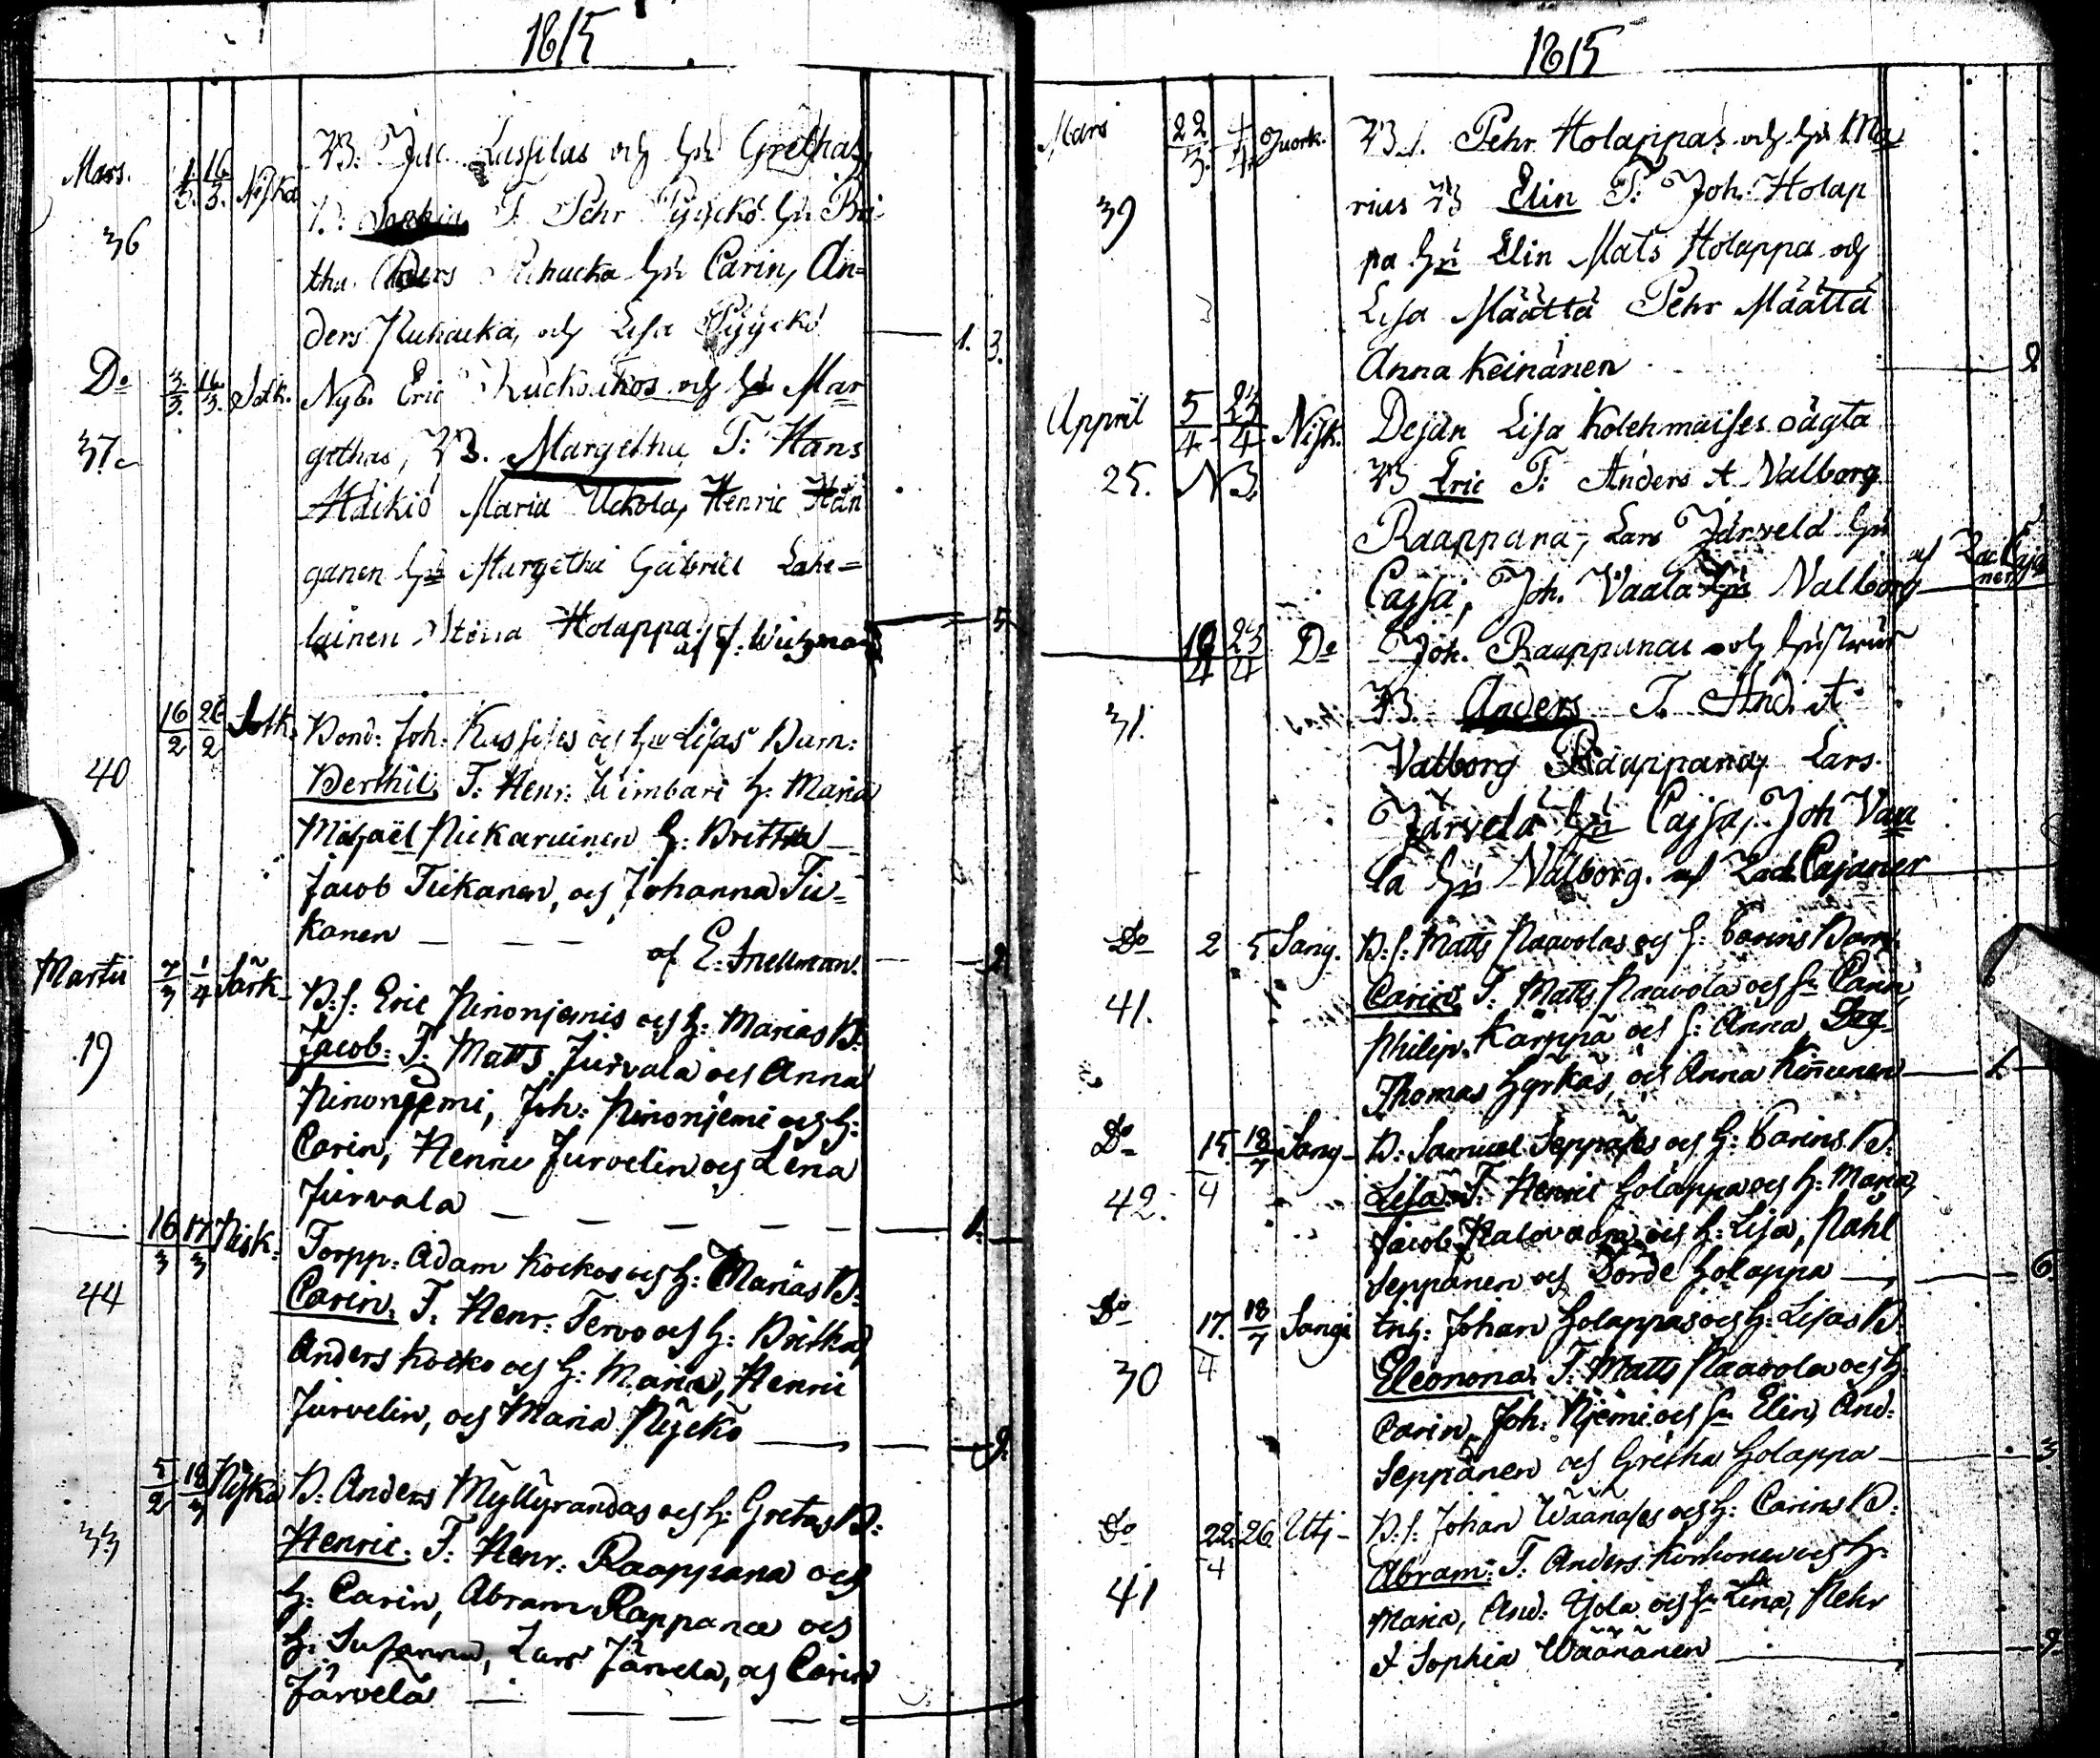 1815
Mars. 1/3. 16/3. Nyska B: Joh. Lassilas och hu Grethas,
36 B: Sophia T. Pehr Pyycko hu Bri
tha. Anders Huhacka hu Carin, An=
ders Huhacka, och Lisa Pyyckö 1. 3.
Do 3/3. 16/3. Sotk. Nyb. Eric Kuckockos och hu Mar
37 gethas, B. Margetha T: Hans
Haikio Maria Uckola, Henric Hän
ganen hu Margetha Gabriel Lahe=
lainen Stina Holappa af J. Wichman 5.
16/2 26/2 Sotk. Bond: Joh. Kassises och hu Lisas Barn:
40 Berthil, T: Henr: Kimbari h: Maria
Michaël Pickarainen h: Brittha
Jacob Tiikanen, och Johanna Tii=
kanen af E. Snellman. 2.
Martii 7/3 1/4 Särk. B: s: Eric Ninonjemis och h: Marias B:
19 Jacob: T: Matts Jurvala och Anna
Ninonjemi, Joh: Ninonjemi och h:
Carin, Henric Jurvelin och Lena
Jurvala 1.
16/3 17/3 Nisk: Torpp: Adam Kockos och h: Marias B:
44 Carin: T: Henr: Tervo och h: Britha,
Anders Kocko och h: Maria, Henric
Jurvelin, och Maria Pyyckö 9.
5/2 18/3 Nyska B: Anders Myllyrandas och h: Gretas B:
33 Henric: T: Henr: Raappana och
h: Carin, Abram Rappana och
h: Susanna, Lars Järvela, och Carin
Järvelä
1815
Mars 22/3. 1/4. Juork. B s. Pehr Holappas och hu Ma
39 rius B Elin T: Joh: Holap
pa hu Elin Mats Holappa och
Lisa Määttä Pehr Määttä
Anna Keinänen 2
Appril 5/4 23/4 Nisk. Dejan Lisa Kolehmaises oägta
25. N3. B Eric T: Anders & Valborg
Raappana, Lars Järvelä hu
Cajsa, Joh. Vaala hu Valborg af Zac. Cajaner
19/4 23/4 Do Joh. Raappanas och hustrus
31. B. Anders T. And. &
Valborg Raappana, Lars.
Järvelä hu Cajsa, Joh Vaa
la hu Valborg. af Zach. Cajaner
Do 2 5 Sang. B: s: Matts Paavolas och h: Carins Barn
41. Carin: T. Matts Paavola och hu Carin,
Philip Karppa och h: Anna, Dag
Thomas Hyrkäs, och Anna Kinnunen 1.
Do 15/4 18/7 Sang B: Samuel Seppäses och h: Carins B:
42. Lisa: T: Henric Holappa och h: Maria,
Jacob Palovaara och h: Lisa, Påhl
Seppänen och Dorde Holappa 6.
Do 17./4 18/7 Sangi Inh: Johan Holappas och h: Lisas B:
30 Eleonora: T: Matts Paavola och h:
Carin, Joh: Njemi och hu Elin, And:
Seppänen och Gretha Holappa 3
Do 22./4 26 Utj B: s: Johan Wäänäses och h: Carins B:
41 Abram: T: Anders Korhonen och h:
Maria, And: Yjola och hu Lena, Pehr
& Sophia Wäänänen 9.